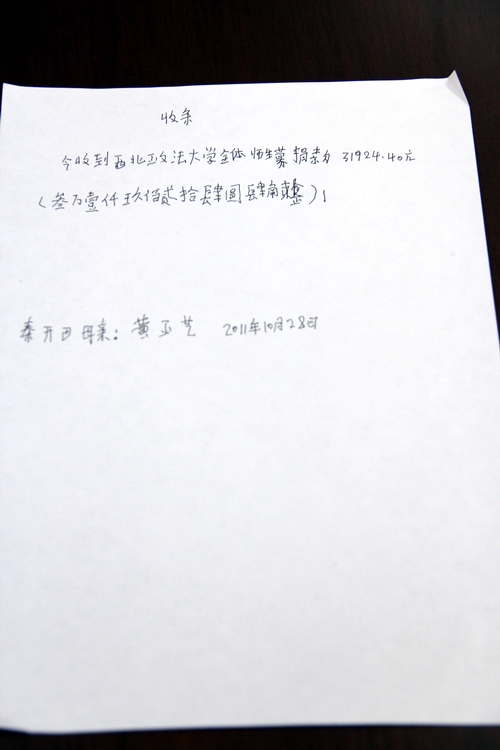 收条
今收到西北政法大学全体师生募捐款为 31924.40元
(叁万壹仟玖佰贰拾肆圆肆角整)
秦开田母亲: 黄玉芝 2011年10月28日